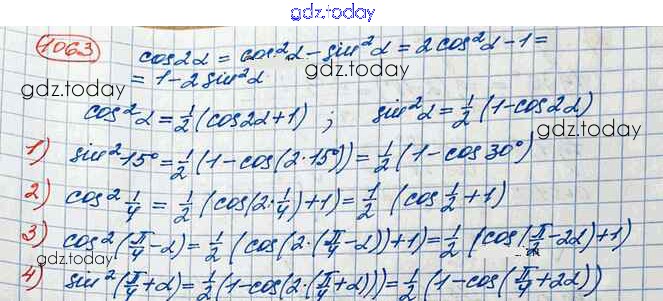 gdz.today
1063
cos2α = cos²α - sin²α = 2cos²α - 1 =
= 1 - 2sin²α
gdz.today
gdz.today
cos²α = 1/2 (cos2α + 1) ; sin²α = 1/2 (1 - cos2α)
gdz.today
1) sin²15° = 1/2 (1 - cos(2·15°)) = 1/2 (1 - cos30°)
2) cos² 1/4 = 1/2 (cos(2·1/4) + 1) = 1/2 (cos 1/2 + 1)
3) cos²(π/4 - α) = 1/2 (cos(2·(π/4 - α)) + 1) = 1/2 (cos(π/2 - 2α) + 1)
gdz.today
gdz.today
4) sin²(π/4 + α) = 1/2 (1 - cos(2·(π/4 + α))) = 1/2 (1 - cos(π/4 + 2α))